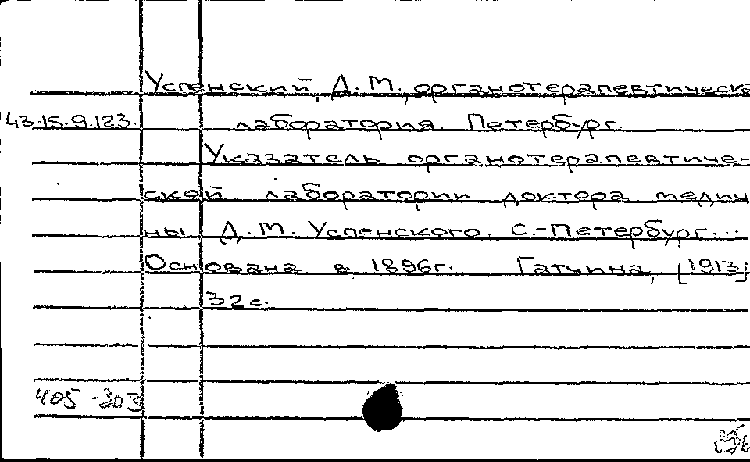 Успенский, Д. М., органотерапевтическ
43.15.9.123. лаборатория. Петербург.
Указатель органотерапевтиче-
ской лаборатории доктора медици
ны Д. М. Успенского. С.-Петербург...
Основана в 1896г. Гатчина, [1913]
32 с.
405-303